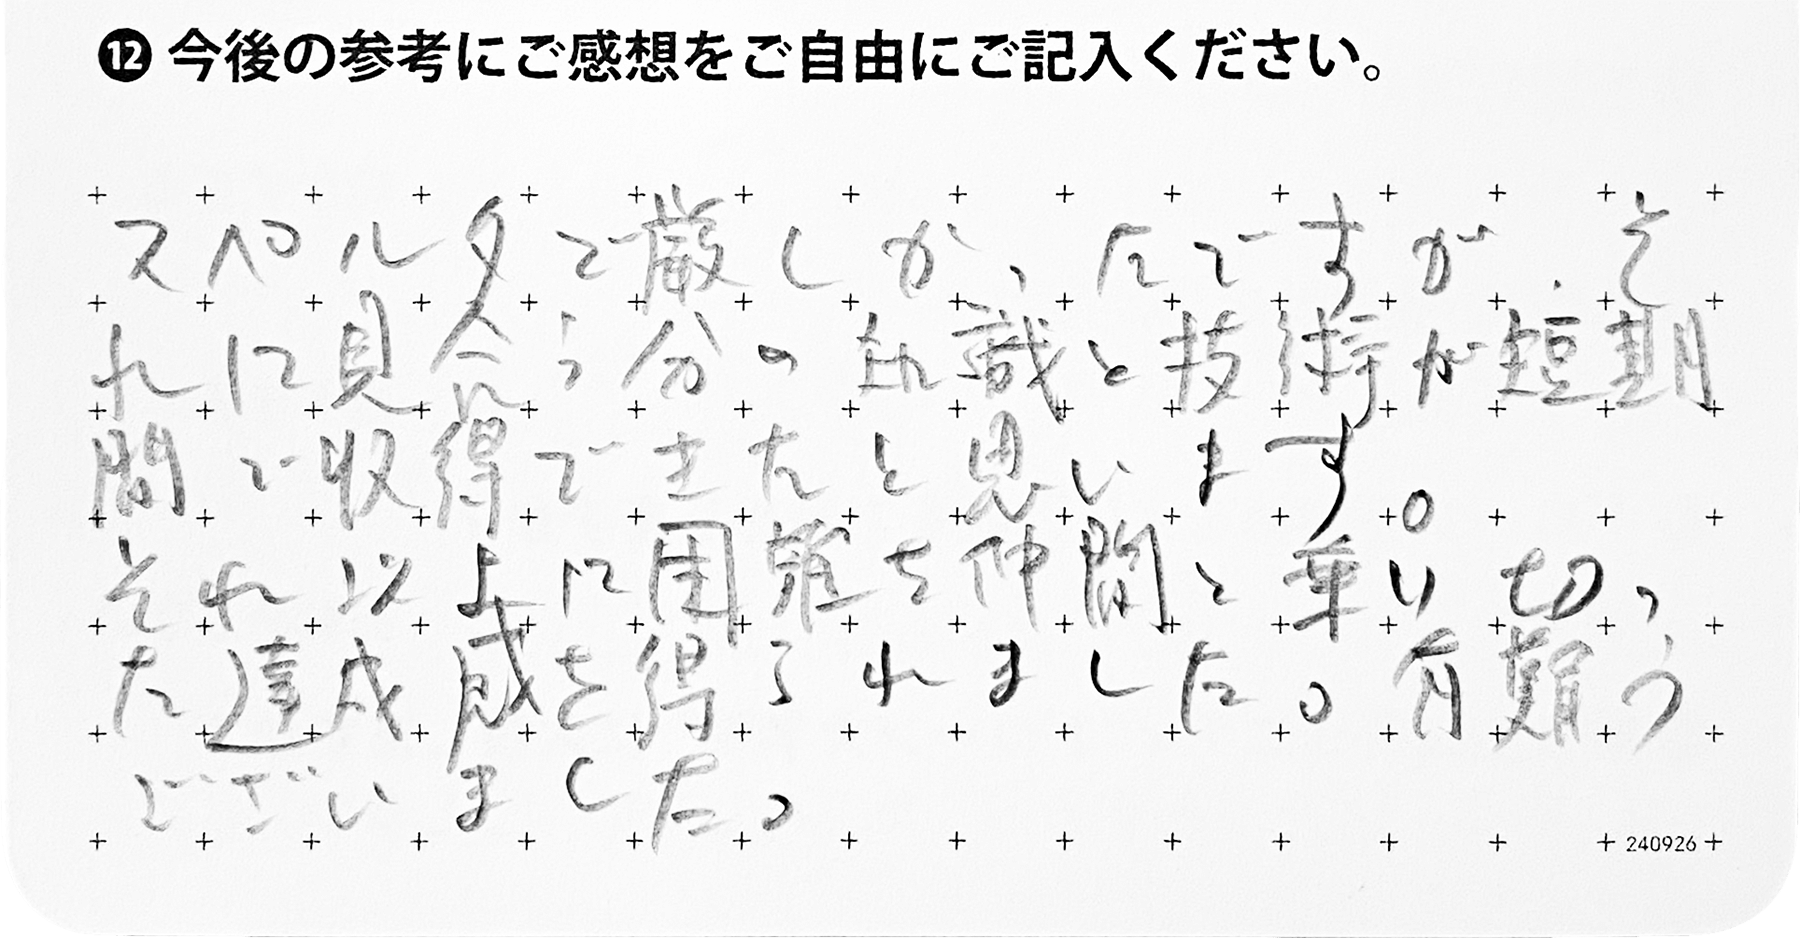 ⓬ 今後の参考にご感想をご自由にご記入ください。
スペルタで厳しかったですが、そ
れに見合う分の知識と技術が短期
間で収得できたと思います。
それ以上に困難を仲間と乗り切っ
た達成感を得られました。有難う
ございました。
240926